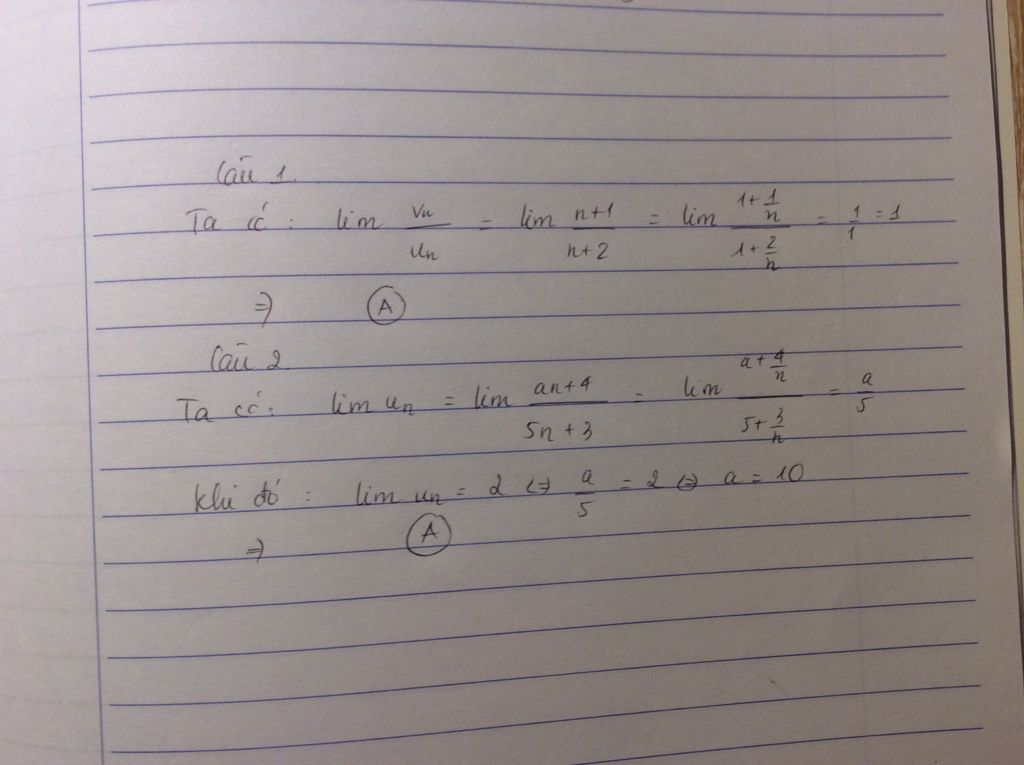 Câu 1.
Ta có : lim vn/un = lim n+1/n+2 = lim 1+1/n / 1+2/n = 1/1 = 1
⇒ A
Câu 2.
Ta có : lim un = lim an+4/5n+3 = lim a+4/n / 5+3/n = a/5
Khi đó : lim un = 2 ⇔ a/5 = 2 ⇔ a = 10
⇒ A